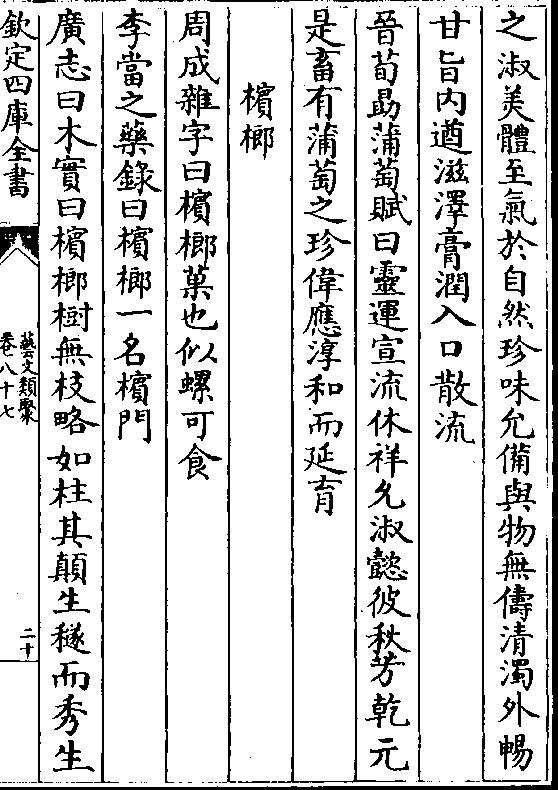 之淑美體至氣於自然珍味允備與物無儔清濁外暢
甘旨内遒滋澤膏潤入口散流
晉荀勗蒲萄賦曰靈運宣流休祥允淑懿彼秋芳乾元
是畜有蒲萄之珍偉應淳和而延育
檳榔
周成雜字曰檳榔菓也似螺可食
李當之藥錄曰檳榔一名檳門
廣志曰木實曰檳榔樹無枝略如柱其顛生穟而秀生
欽定四庫全書
藝文類聚
卷八十七
二十